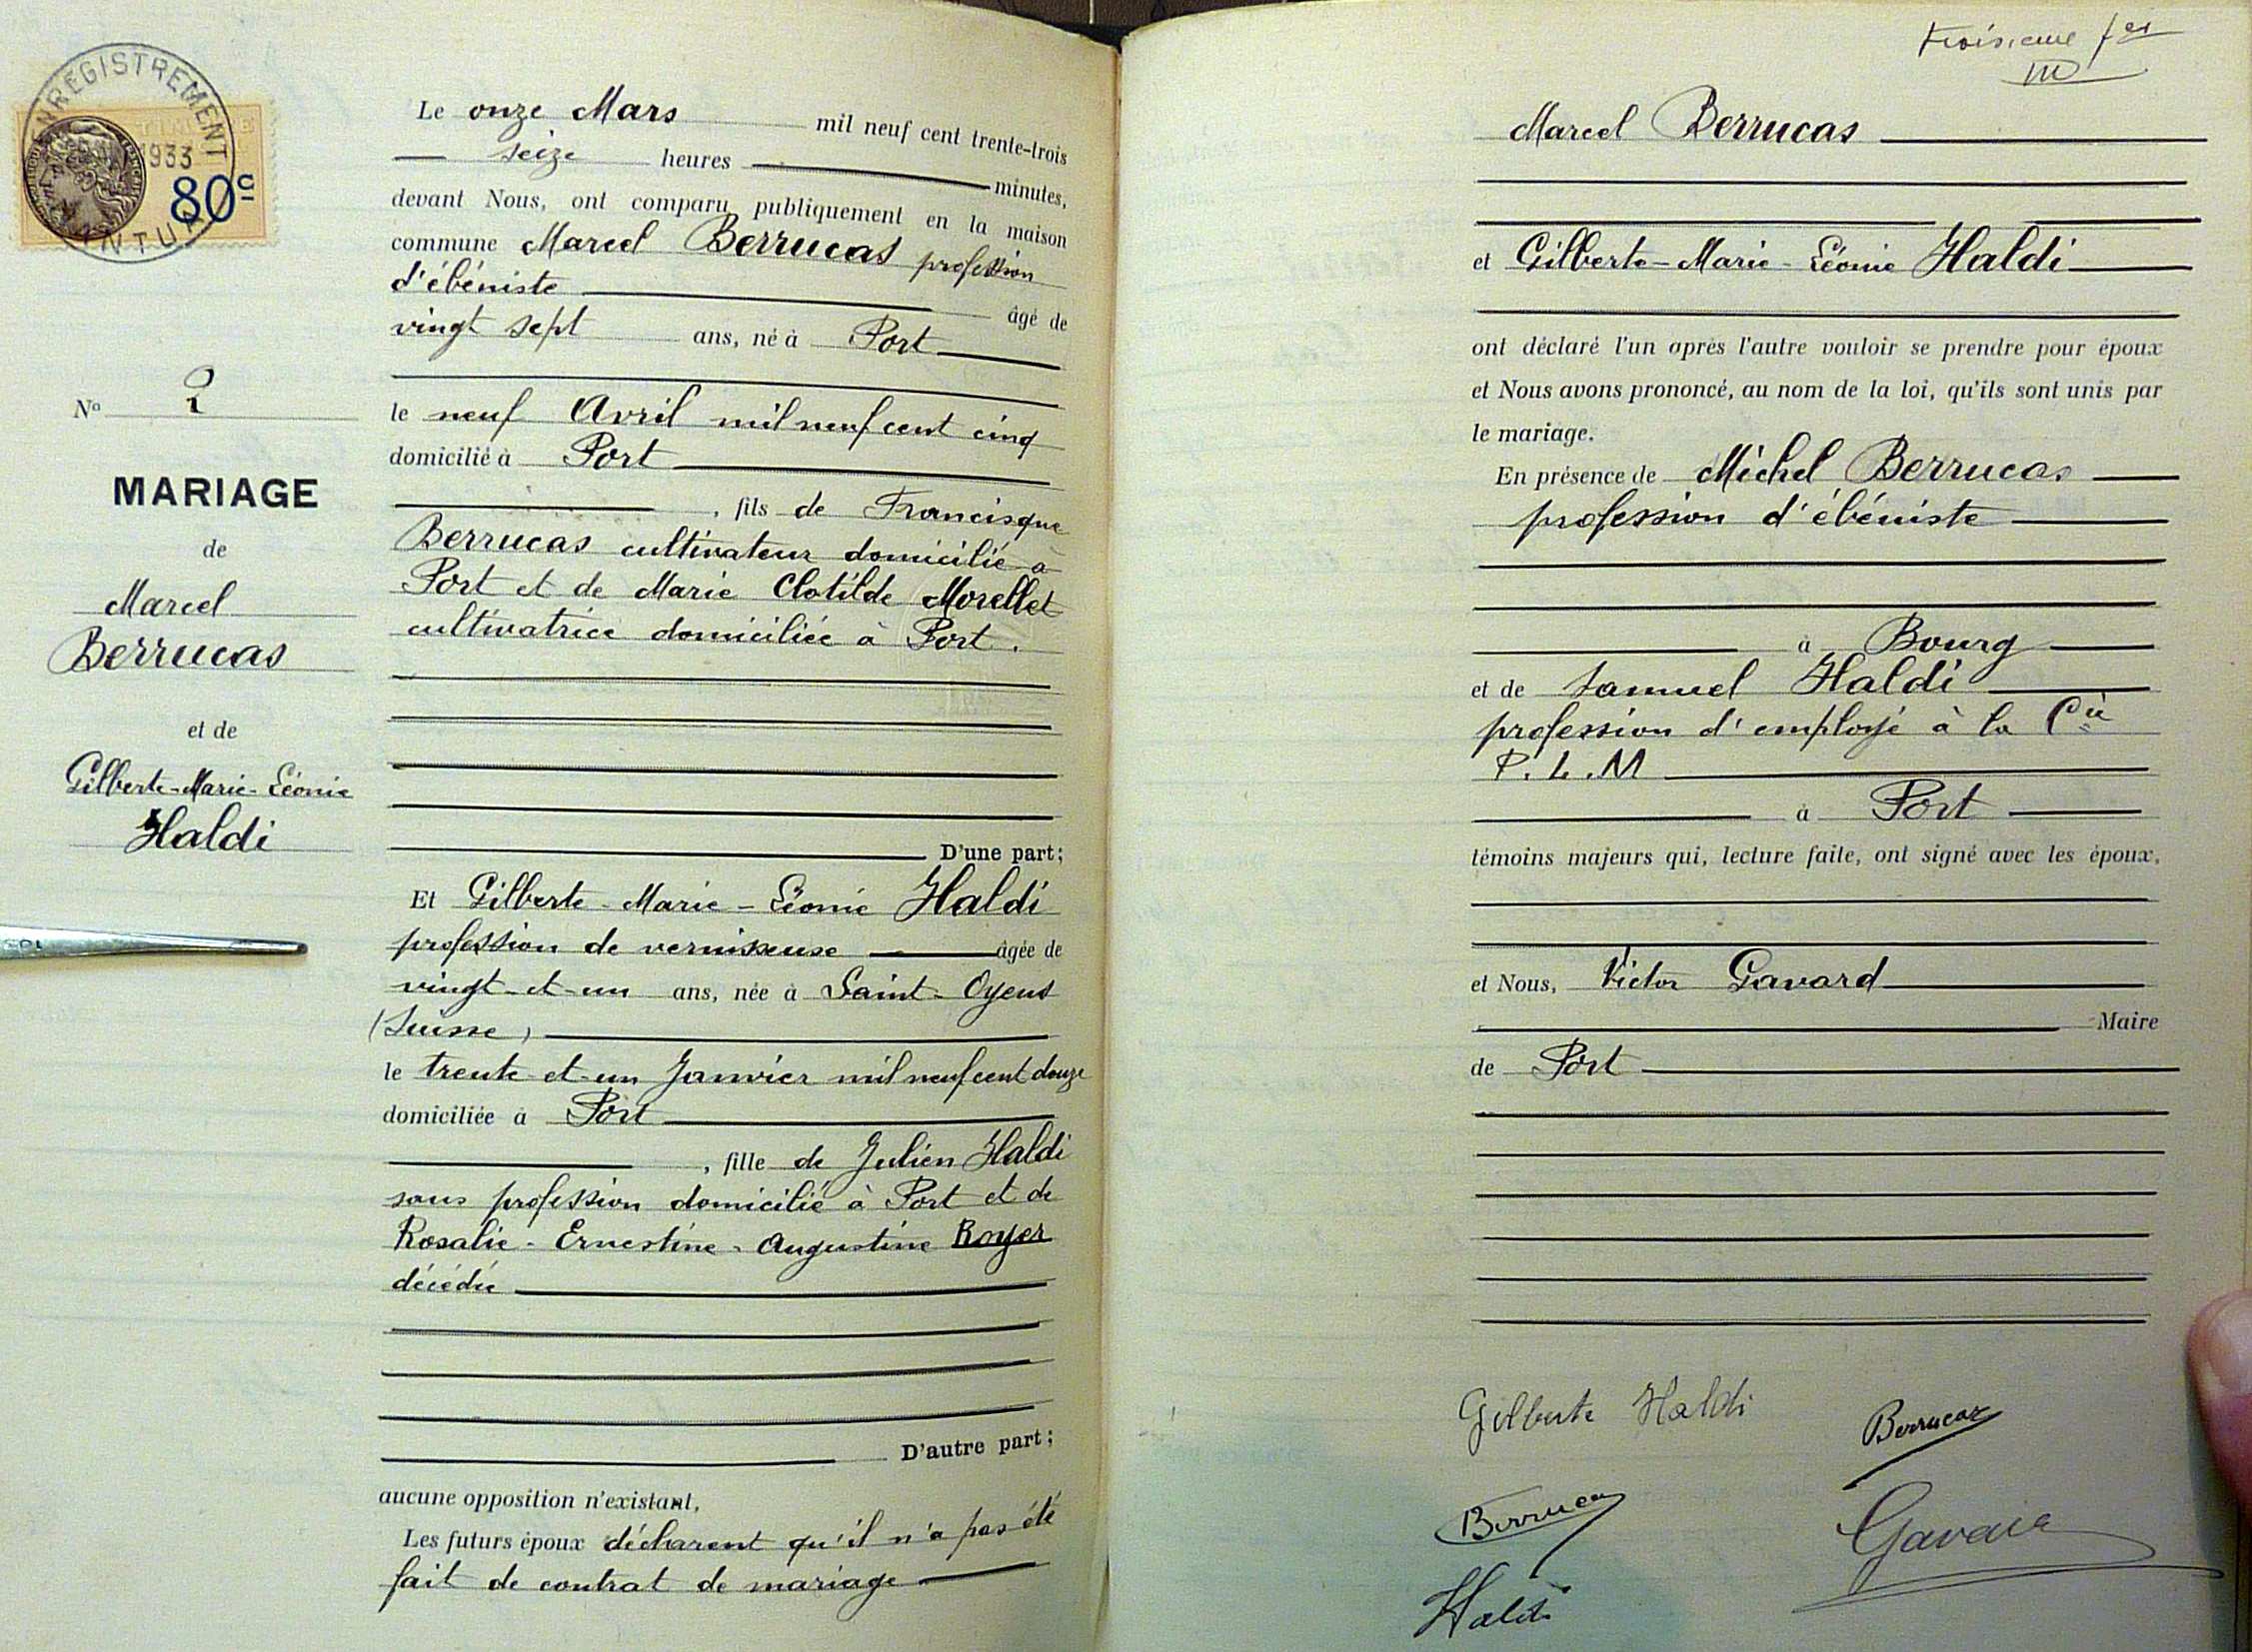 ENREGISTREMENT
1933
80c
NANTUA
N° 2
MARIAGE
de
Marcel
Berrucas
et de
Gilberte-Marie-Léonie
Haldi
Le onze Mars mil neuf cent trente-trois
seize heures minutes,
devant Nous, ont comparu publiquement en la maison
commune Marcel Berrucas profession
d'ébéniste âgé de
vingt sept ans, né à Port
le neuf Avril mil neuf cent cinq
domicilié à Port
, fils de Francisque
Berrucas cultivateur domicilié à
Port et de Marie Clotilde Morellet
cultivatrice domiciliée à Port.
D'une part;
Et Gilberte-Marie-Léonie Haldi
profession de vernisseuse âgée de
vingt-et-un ans, née à Saint-Oyens
(Suisse)
le trente-et-un Janvier mil neuf cent douze
domiciliée à Port
, fille de Julien Haldi
sans profession domicilié à Port et de
Rosalie-Ernestine-Augustine Royer
décédée
D'autre part;
aucune opposition n'existant,
Les futurs époux déclarent qu'il n'a pas été
fait de contrat de mariage
troisième
Marcel Berrucas
et Gilberte-Marie-Léonie Haldi
ont déclaré l'un après l'autre vouloir se prendre pour époux
et Nous avons prononcé, au nom de la loi, qu'ils sont unis par
le mariage.
En présence de Michel Berrucas
profession d'ébéniste
à Bourg
et de Samuel Haldi
profession d'employé à la Cie
P.L.M
à Port
témoins majeurs qui, lecture faite, ont signé avec les époux,
et Nous, Victor Gavard
Maire
de Port
Gilberte Haldi
Berrucas
Berrucas
Gavard
Haldi